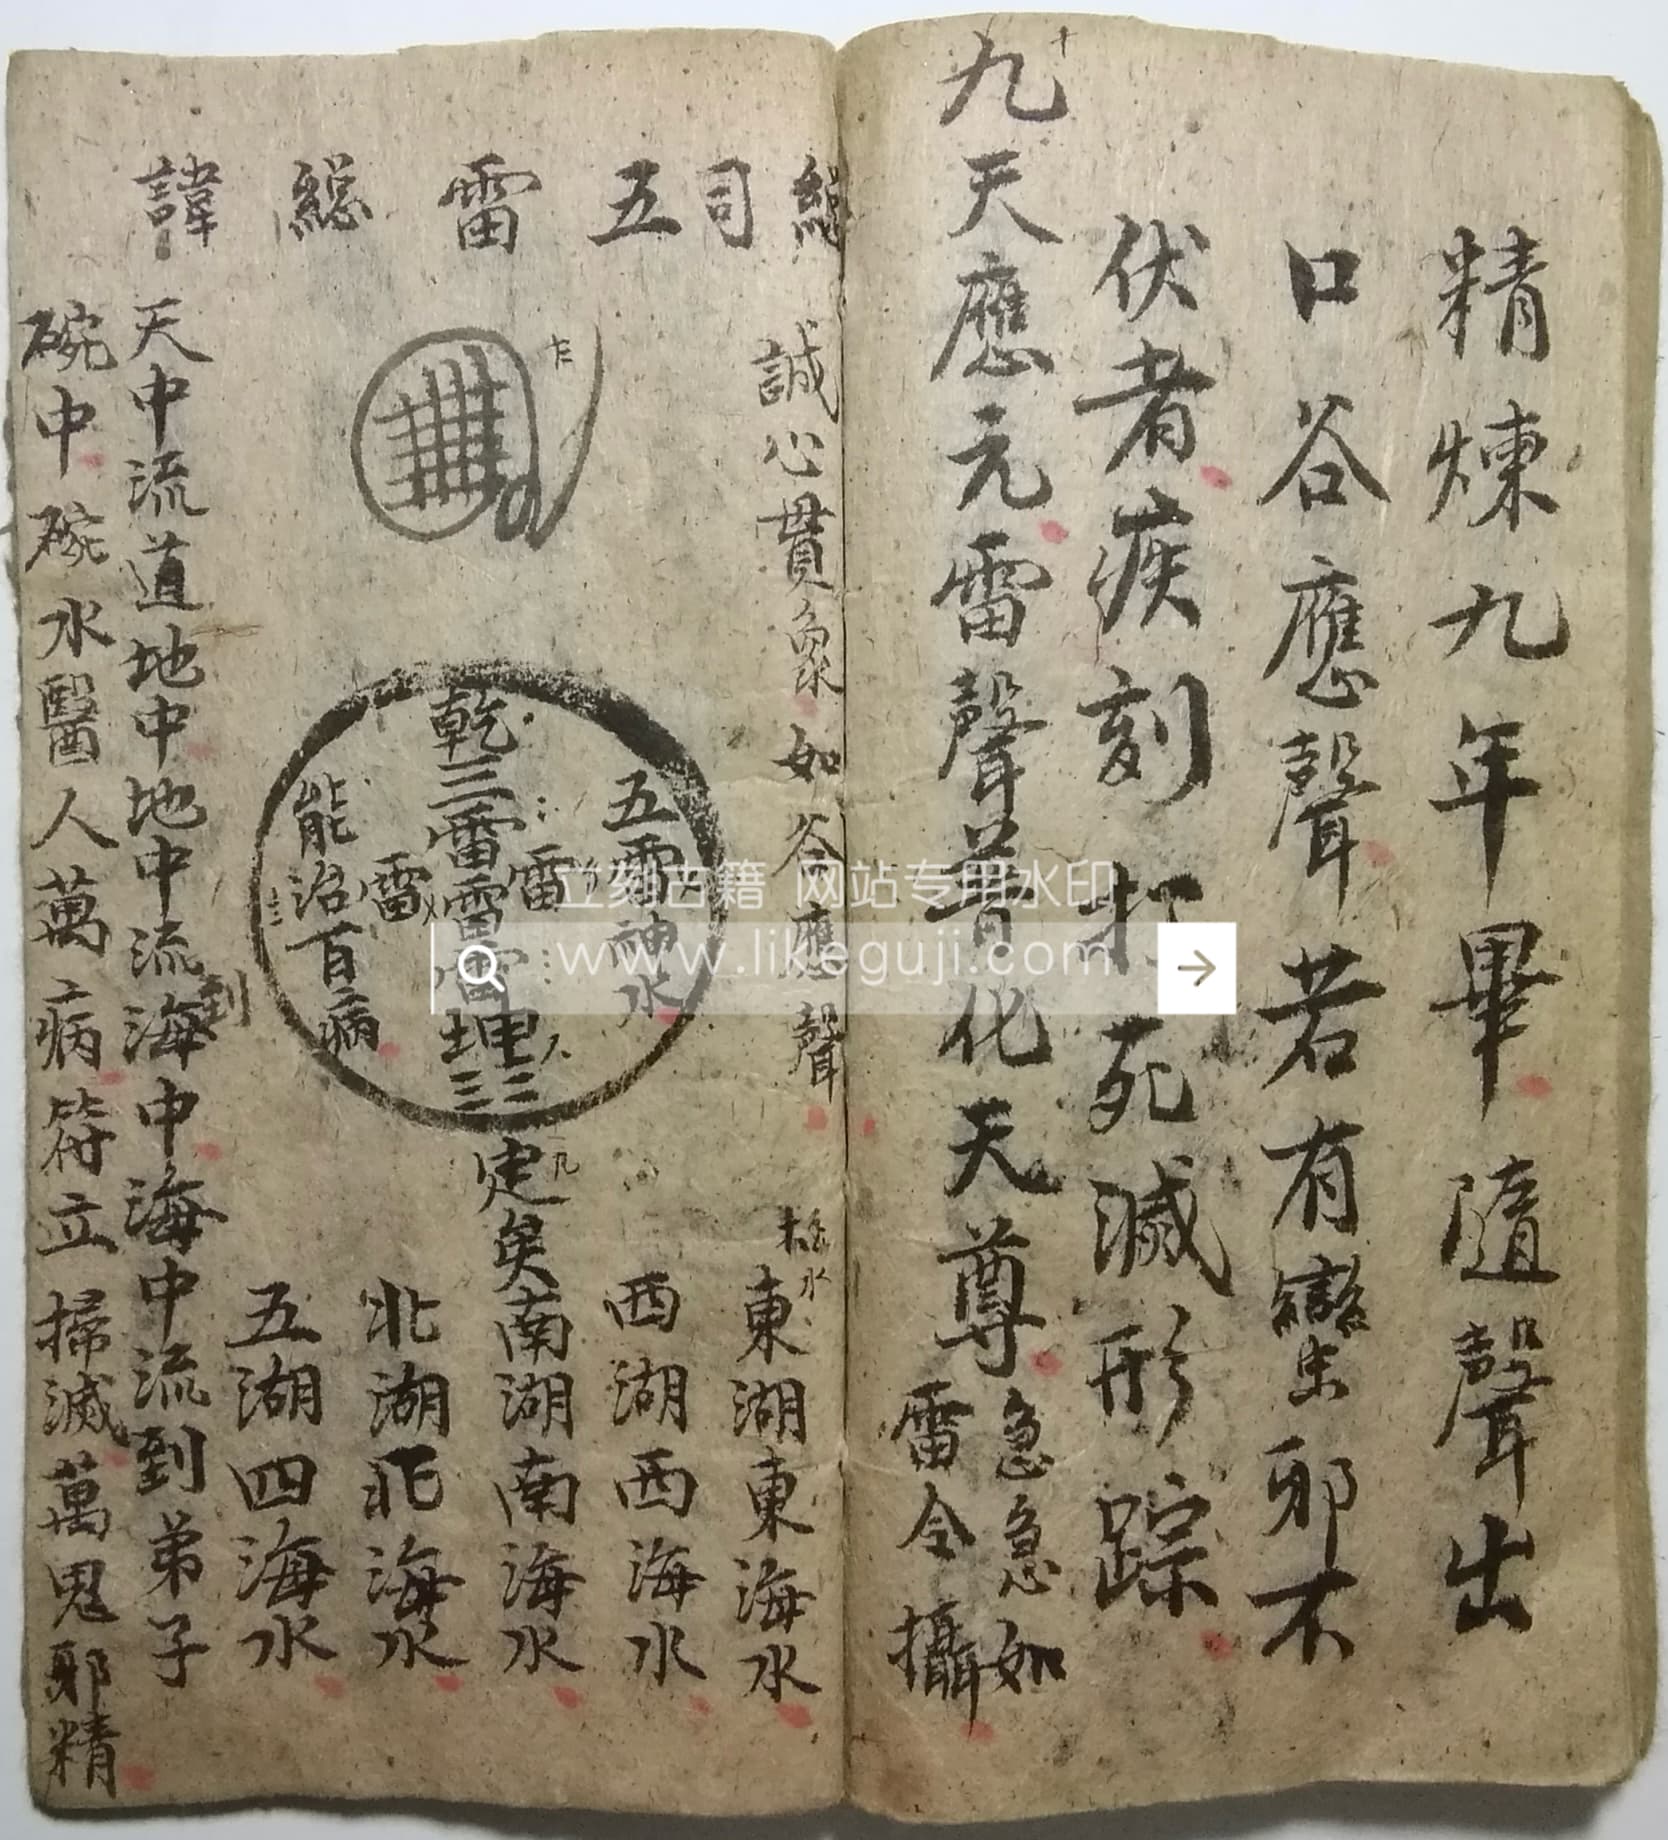 精煉九年畢隨聲出
口谷應聲若有蠻虫邪不
伏者疾刻打死滅形踪
九天應元雷聲普化天尊
急急如
雷令攝
総司五雷総諱
誠心貫象如谷應聲
五雷神水
乾三雷雷雷坤三三
雷
雷
能治百病
定矣
東湖東海水
西湖西海水
南湖南海水
北湖北海水
五湖四海水
天中流道地中地中流海中海中流到弟子
到
碗中碗水醫人萬病符立掃滅萬鬼邪精
立刻古籍 网站专用水印
www.likeguji.com